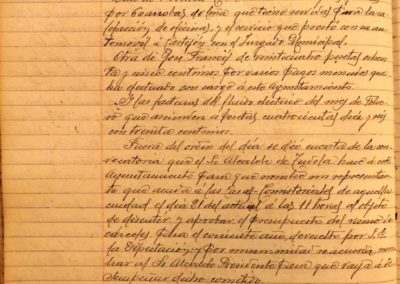 por 60 arrobas de leña que tiene servidas para la ca-
lefacción de oficinas, y el servicio que prestó con su au-
tomovil a Castejón con el Juzgado Municipal.
Otra de Jose Francés de veinticuatro pesetas ochen-
ta y cinco centimos por varios pagos menudos que
ha efectuado con cargo á este Ayuntamiento.
Y las facturas del fluido electrico del mes de Febre-
ro que ascienden a pesetas cuatrocientas diez y seis
con treinta centimos.
Fuera del orden del día se dió cuenta de la con-
vocatoria que el Sr Alcalde de Tudela hace á este
Ayuntamiento para que nombre un representan-
te que acuda á las Casas Consistoriales de aquella
ciudad el día 21 del actual á las 11 horas al objeto
de discutir y aprobar el presupuesto del ramo de
carceles para el corriente año, devuelto por S. E.
la Diputación; y por unanimidad se acuerda
al Sr Alcalde Presidente para que vaya á
dicho cometido.